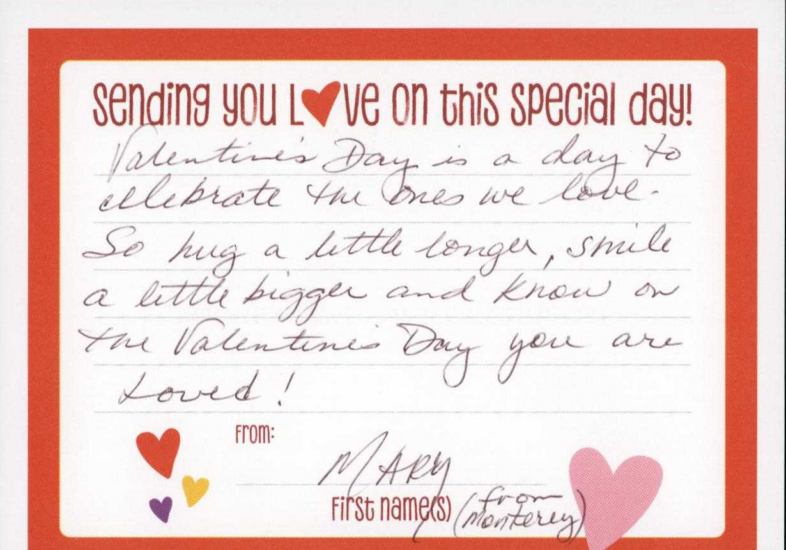 Sending you Love on this special day!
Valentine's Day is a day to
celebrate the ones we love.
So hug a little longer, smile
a little bigger and know on
the Valentine's Day you are
Loved!
From:
MARY
First name(s) (from
Monterey)